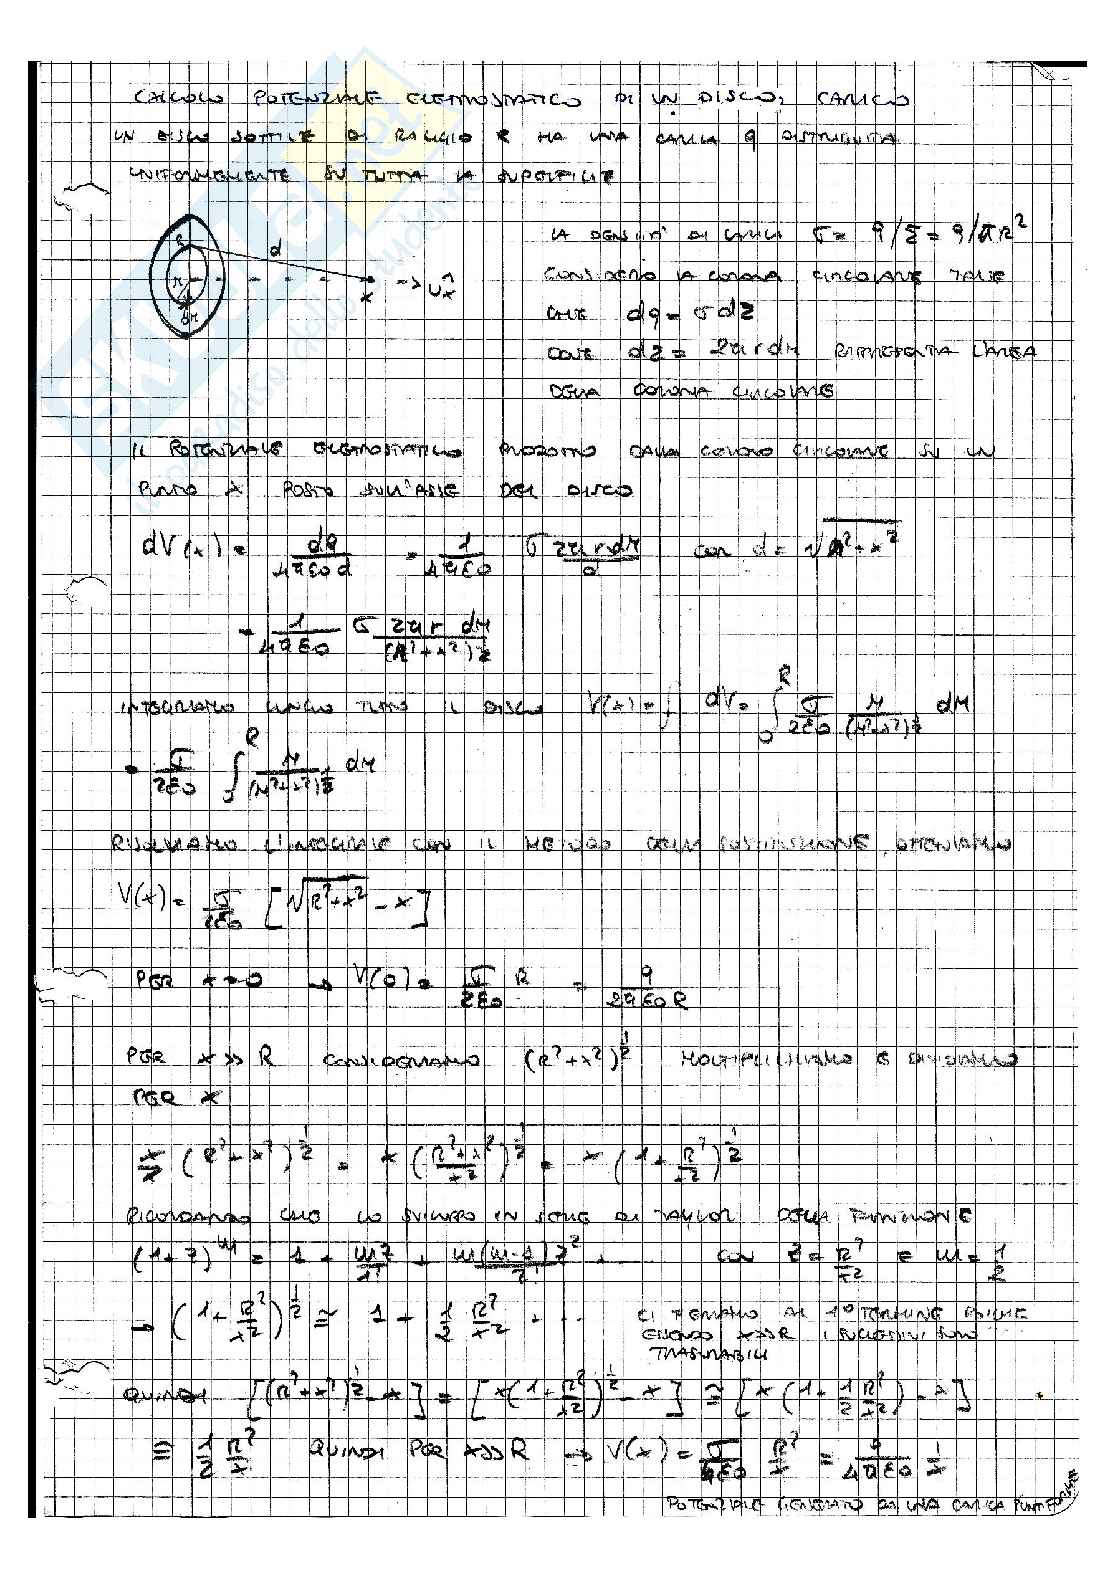 CALCOLO POTENZIALE ELETTROSTATICO DI UN DISCO CARICO
UN DISCO SOTTILE DI RAGGIO R HA UNA CARICA q DISTRIBUITA
UNIFORMEMENTE SU TUTTA LA SUPERFICIE
LA DENSITA' DI CARICA σ = q/Σ = q/πR²
CONSIDERO LA CORONA CIRCOLARE TALE
CHE dq = σ dΣ
DOVE dΣ = 2π r dr RAPPRESENTA L'AREA
DELLA CORONA CIRCOLARE
R d r dr x -> û_x
IL POTENZIALE ELETTROSTATICO PRODOTTO DALLA CORONA CIRCOLARE SU UN
PUNTO X POSTO SULL'ASSE DEL DISCO
dV(x) = dq/(4πε0 d) = 1/(4πε0) σ 2π r dr/d con d = √(r²+x²)
= 1/(4πε0) σ 2π r dr/(r²+x²)^½
INTEGRIAMO LUNGO TUTTO IL DISCO V(x) = ∫ dV = ∫₀^R σ/(2ε0) r/(r²+x²)^½ dr
= σ/(2ε0) ∫₀^R r/(r²+x²)^½ dr
RISOLVIAMO L'INTEGRALE CON IL METODO DELLA SOSTITUZIONE, OTTENIAMO
V(x) = σ/(2ε0) [√(R²+x²) - x]
PER x = 0 → V(0) = σ/(2ε0) R = q/(2πε0 R)
PER x >> R CONSIDERIAMO (R²+x²)^½ MOLTIPLICHIAMO E DIVIDIAMO
PER x
x/x (R²+x²)^½ = x ((R²+x²)/x²)^½ = x (1 + R²/x²)^½
RICORDANDO CHE LO SVILUPPO IN SERIE DI TAYLOR DELLA FUNZIONE
(1+z)^m = 1 + mz/1! + m(m-1)z²/2! + con z = R²/x² e m = 1/2
→ (1 + R²/x²)^½ ≅ 1 + 1/2 R²/x² + ... CI FERMIAMO AL 1° TERMINE POICHE
ESSENDO x>>R I SUCCESSIVI SONO
TRASCURABILI
QUINDI [(R²+x²)^½ - x] = [x(1 + R²/x²)^½ - x] ≅ [x(1 + 1/2 R²/x²) - x]
≅ 1/2 R²/x QUINDI PER x>>R → V(x) = σ/(4ε0) R²/x = q/(4πε0) 1/x
POTENZIALE GENERATO DA UNA CARICA PUNTIFORME